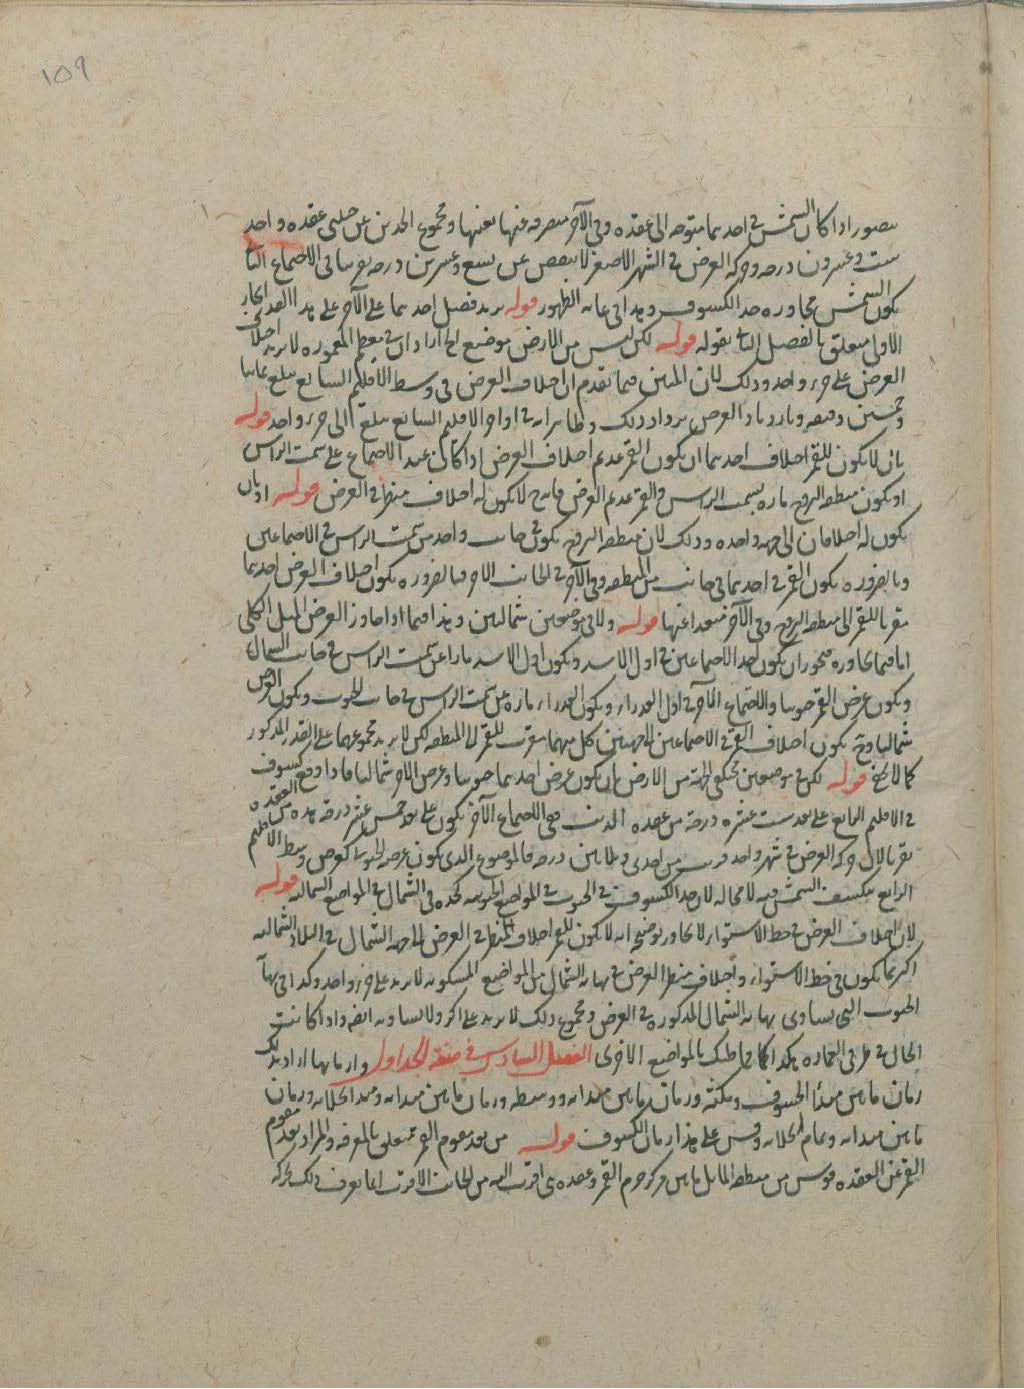 ١٥٩
يتصور اذا كان الشمس في احديهما متوجهة الى عقدة وفي الآخر منصرفة عنها بعينها ومجموع الحدين عن جنبتي عقدة واحدة
ست وعشرون درجة وحركة العرض في الشهر الاصغر لا ينقص عن تسع وعشرين درجة تقريبا ففي الاجتماع الثاني
يكون الشمس مجاورة حد الكسوف وهذا في غاية الظهور قوله يزيد فضل احديهما على الآخر على هذا القدر الجار
الاول متعلق بالفضل الثاني بقوله قوله لكن ليس من الارض موضع الخ اراد ان في معظم المعمورة لا يزيد اختلاف
العرض على جزء واحد وذلك لان المبين فيما تقدم ان اختلاف العرض في وسط الاقليم السابع يبلغ ثمانيا
وخمسين دقيقة وبازدياد العرض يزداد ذلك وظاهر انه في اواخر الاقليم السابع يبلغ الى جزء واحد قوله
بان لا يكون للقمر اختلاف احديهما ان يكون القمر عديم اختلاف العرض اذا كان عند الاجتماع على سمت الراس
او يكون منطقة البروج مارة بسمت الراس والقمر عديم العرض فانه ح لا يكون له اختلاف منظر في العرض قوله او بان
يكون له اختلافان الى جهة واحدة وذلك لان منطقة البروج يكون في جانب واحد من سمت الراس في الاجتماعين
وبالضرورة يكون القمر في احديهما في جانب من المنطقة وفي الآخر في الجانب الآخر فبالضرورة يكون اختلاف العرض احديهما
مقربا للقمر الى منطقة البروج وفي الآخر مبعدا عنها قوله ولا في موضعين شماليين وهذا فيما اذا جاوز العرض الميل الكلي
اما فيما يجاوره فيجوز ان يكون احد الاجتماعين في اول الاسد ويكون اول الاسد مارا عن سمت الراس في جانب الشمال
ويكون عرض القمر جنوبيا والاجتماع الآخر في اول العذراء ويكون العذراء مارة عن سمت الراس في جانب الجنوب ويكون العرض
شماليا وح يكون اختلاف القمر في الاجتماعين الى جهتين كل منهما مقرب للقمر الى المنطقة لكن لا يزيد مجموعهما على القدر المذكور
كما لا يخفى قوله لكن في موضعين مختلفي الجهة من الارض بان يكون عرض احديهما جنوبيا وعرض الآخر شماليا فاذا وقع كسوف
في الاقليم الرابع على بعد ست عشرة درجة من عقدة الذنب ففي الاجتماع الآخر يكون على بعد خمس عشر درجة من هذه العقدة
تقريبا لان حركة العرض في شهر واحد قريب من احدى وثلاثين درجة فالموضع الذي يكون عرضه الجنوبي كعرض وسط الاقليم
الرابع ينكسف الشمس فيه لا محالة لان حد الكسوف في الجنوب في المواضع الجنوبية كحده في الشمال في المواضع الشمالية قوله
لان اختلاف العرض في خط الاستواء لا يجاوز توضيحه انه لا يكون للقمر اختلاف المنظر في العرض الى جهة الشمال في البلاد الشمالية
اكثر مما يكون في خط الاستواء واختلاف منظر العرض في نهاية الشمال من المواضع المسكونة لا يزيد على جزء واحد وكذا في نهاية
الجنوب التي يساوي نهاية الشمال المذكورة في العرض ومجموع ذلك لا يزيد على اكر ولا يساويه ايضا واذا كانت
الحال في طرفي العمارة هكذا فما ظنك بالمواضع الاخرى الفصل السادس في صنعة الجداول وازمانها اراد بذلك
زمان ما بين مبدأ الخسوف ومكثه وزمان ما بين مبدأه ووسطه وزمان ما بين مبدأه ومبدأ انجلائه وزمان
ما بين مبدأه وتمام انجلائه وقس على هذا ازمان الكسوف قوله من بعد تقويم القمر متعلق بالمعرفة والمراد ببعد تقويم
القمر عن العقدة قوس من منطقة المايل ما بين مركز جرم القمر وعقدة هي اقرب اليه من الجانب الاقرب انما يعرف ذلك بحركة